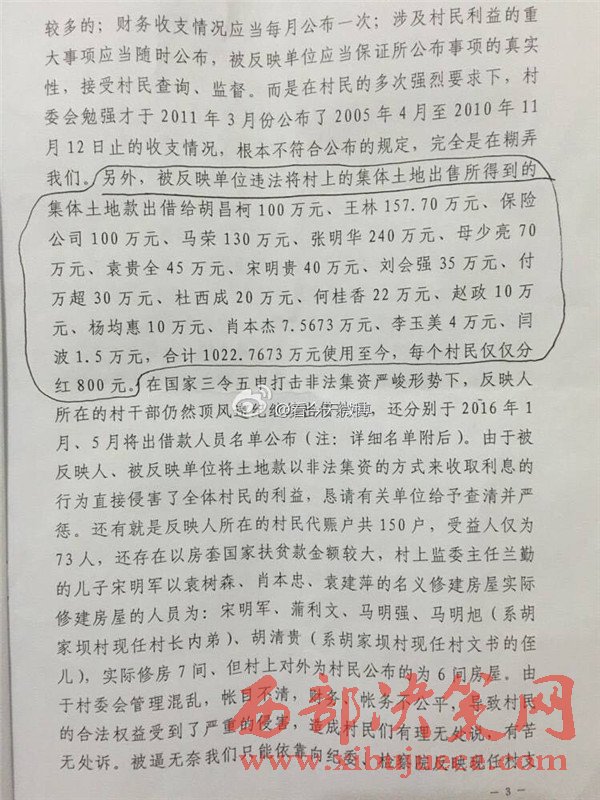 较多的；财务收支情况应当每月公布一次；涉及村民利益的重
大事项应当随时公布，被反映单位应当保证所公布事项的真实
性，接受村民查询、监督。而是在村民的多次强烈要求下，村
委会勉强才于 2011 年 3 月份公布了 2005 年 4 月至 2010 年 11
月 12 日止的收支情况，根本不符合公布的规定，完全是在糊弄
我们。另外，被反映单位违法将村上的集体土地出售所得到的
集体土地款出借给胡昌柯 100 万元、王林 157.70 万元、保险
公司 100 万元、马荣 130 万元、张明华 240 万元、母少亮 70
万元、袁贵全 45 万元、宋明贵 40 万元、刘会强 35 万元、付
万超 30 万元、杜西成 20 万元、何桂香 22 万元、赵政 10 万
元、杨均惠 10 万元、肖本杰 7.5673 万元、李玉美 4 万元、闫
波 1.5 万元，合计 1022.7673 万元使用至今，每个村民仅仅分
红 800 元。在国家三令五申打击非法集资严峻形势下，反映人
所在的村干部仍然顶风 还分别于 2016 年 1
月、5 月将出借款人员名单公布（注：详细名单附后）。由于被
反映人、被反映单位将土地款以非法集资的方式来收取利息的
行为直接侵害了全体村民的利益，恳请有关单位给予查清并严
惩。还有就是反映人所在的村民代赈户共 150 户，受益人仅为
73 人，还存在以房套国家扶贫款金额较大，村上监委主任兰勤
的儿子宋明军以袁树森、肖本忠、袁建萍的名义修建房屋实际
修建房屋的人员为：宋明军、蒲利文、马明强、马明旭（系胡
家坝村现任村长内弟）、胡清贵（系胡家坝村现任村文书的侄
儿），实际修房 7 间、但村上对外为村民公布的为 6 间房屋。由
于村委会管理混乱，帐目不清，财务、帐务不公平，导致村民
的合法权益受到了严重的侵害，造成村民们有理无处说、有苦
无处诉。被逼无奈我们只能依靠向纪委、检察院反映现任村支
西部决策网
www.xibujuece.com
— 3 —